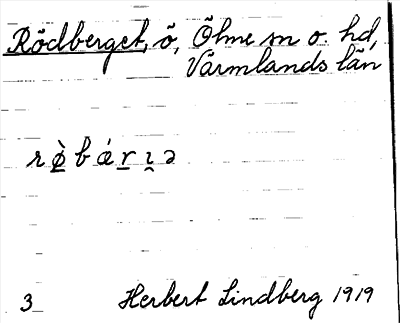 Rödberget, ö, Ölme sn o. hd,
Värmlands län
rø̀bǽrɩə
3 Herbert Lindberg 1919